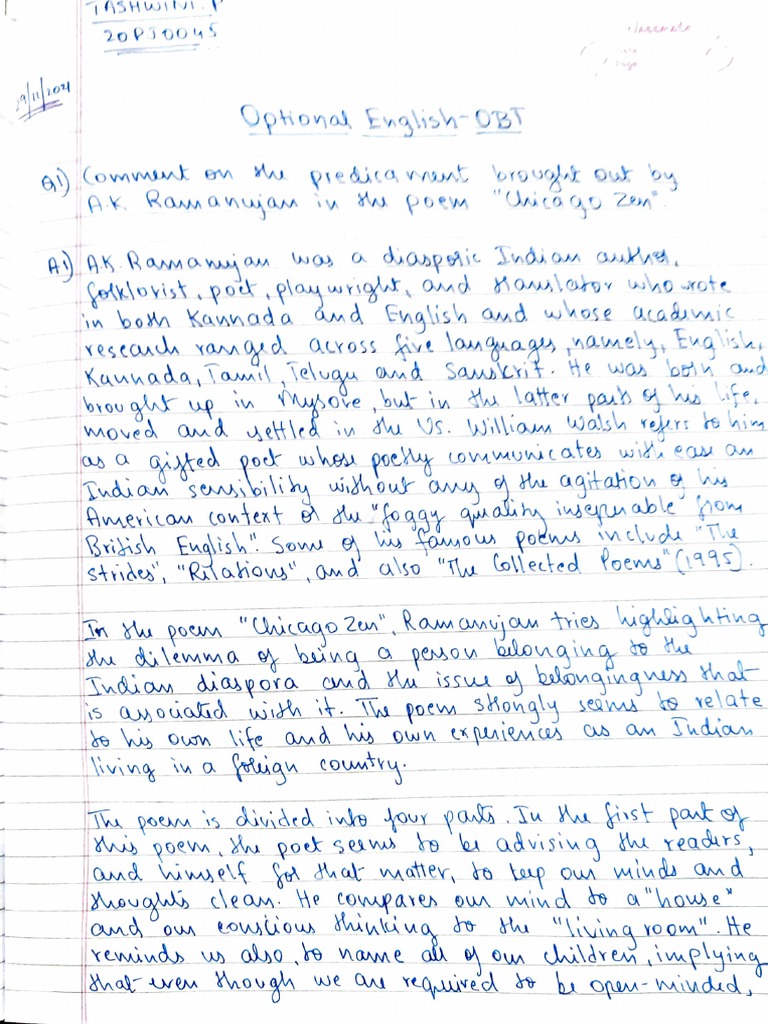 TASHWINI.P
20PJ0045
classmate
Date
Page
29/11/2021
Optional English-OBT
Q1) Comment on the predicament brought out by
A.K. Ramanujan in the poem "Chicago Zen".
A1) A.K. Ramanujan was a diasporic Indian author,
folklorist, poet, playwright, and translator who wrote
in both Kannada and English and whose academic
research ranged across five languages, namely, English,
Kannada, Tamil, Telugu and Sanskrit. He was born and
brought up in Mysore, but in the latter parts of his life,
moved and settled in the US. William Walsh refers to him
as a gifted poet whose poetry communicates with ease an
Indian sensibility without any of the agitation of his
American context or the "foggy quality inseperable from
British English". Some of his famous poems include "The
strides", "Relations", and also "The Collected Poems" (1995).
In the poem "Chicago Zen", Ramanujan tries highlighting
the dilemma of being a person belonging to the
Indian diaspora and the issue of belongingness that
is associated with it. The poem strongly seems to relate
to his own life and his own experiences as an Indian
living in a foreign country.
The poem is divided into four parts. In the first part of
this poem, the poet seems to be advising the readers,
and himself for that matter, to keep our minds and
thoughts clean. He compares our mind to a "house"
and our conscious thinking to the "living room". He
reminds us also, to name all of our children, implying
that even though we are required to be open-minded,